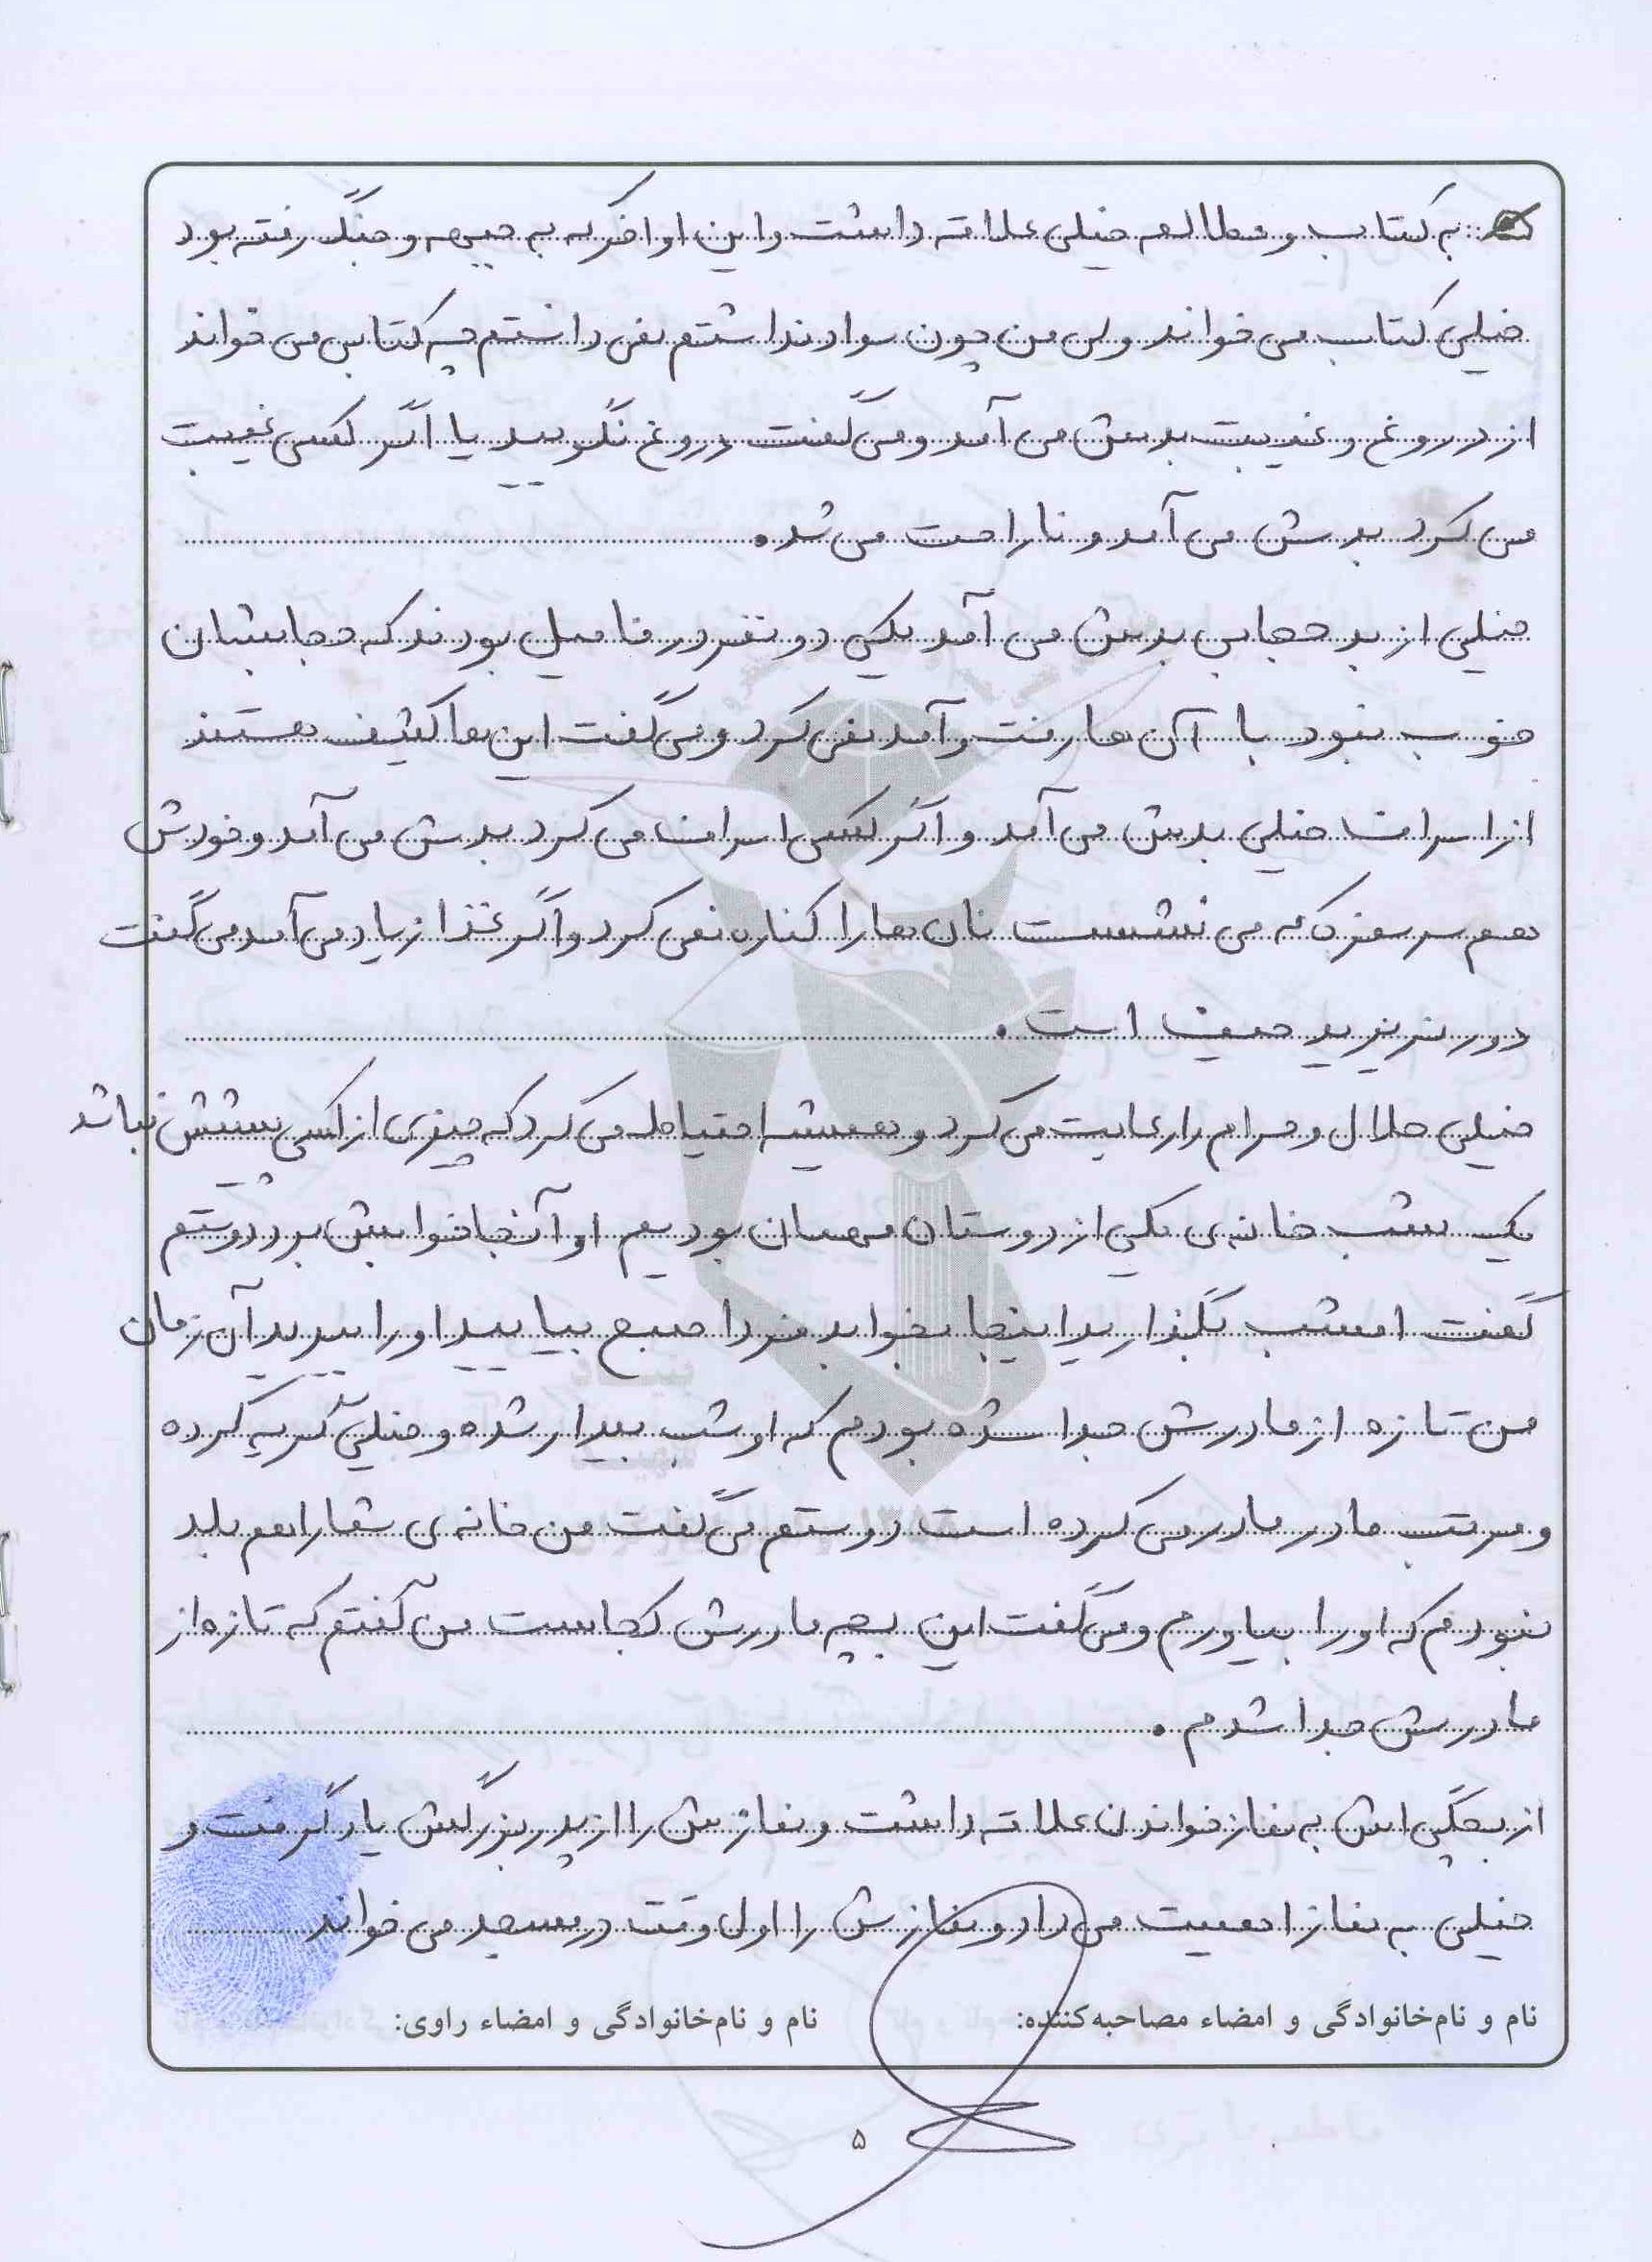 به کتاب و مطالعه خیلی علاقه داشت و این اواخر که به جبهه و جنگ رفته بود
خیلی کتاب می خواند ولی من چون سواد نداشتم نمی دانستم چه کتابی می خواند
از دروغ و غیبت بدش می آمد و می گفت دروغ نگویید یا اگر کسی غیبت
می کرد بدش می آمد و ناراحت می شد.
خیلی از بد حجابی بدش می آمد یکی دو نفر در فامیل بودند که حجابشان
خوب نبود با آن ها رفت و آمد نمی کرد و می گفت این ها کثیف هستند
از اسراف خیلی بدش می آمد و اگر کسی اسراف می کرد بدش می آمد و خودش
هم سر سفره که می نشست نان ها را کناره نمی کرد و اگر غذا زیاد می آمد می گفت
دور نریزید حیف است.
خیلی حلال و حرام را رعایت می کرد و همیشه احتیاط می کرد که چیزی از کسی پیشش نباشد
یک شب خانه ی یکی از دوستان مهمان بودیم او آنجا خوابش برد دوستم
گفت امشب بگذارید اینجا بخوابد فردا صبح بیایید او را ببرید آن زمان
من تازه از مادرش جدا شده بودم که او شب بیدار شده و خیلی گریه کرده
و مرتب مادر مادر می کرده است دوستم می گفت من خانه ی شما را هم بلد
نبودم که او را بیاورم و می گفت این بچه مادرش کجاست من گفتم که تازه از
مادرش جدا شدم.
از بچگی اش به نماز خواندن علاقه داشت و نمازش را از پدربزرگش یاد گرفت و
خیلی به نماز اهمیت می داد و نمازش را اول وقت در مسجد می خواند
نام و نام‌خانوادگی و امضاء مصاحبه‌کننده: نام و نام‌خانوادگی و امضاء راوی:
۵